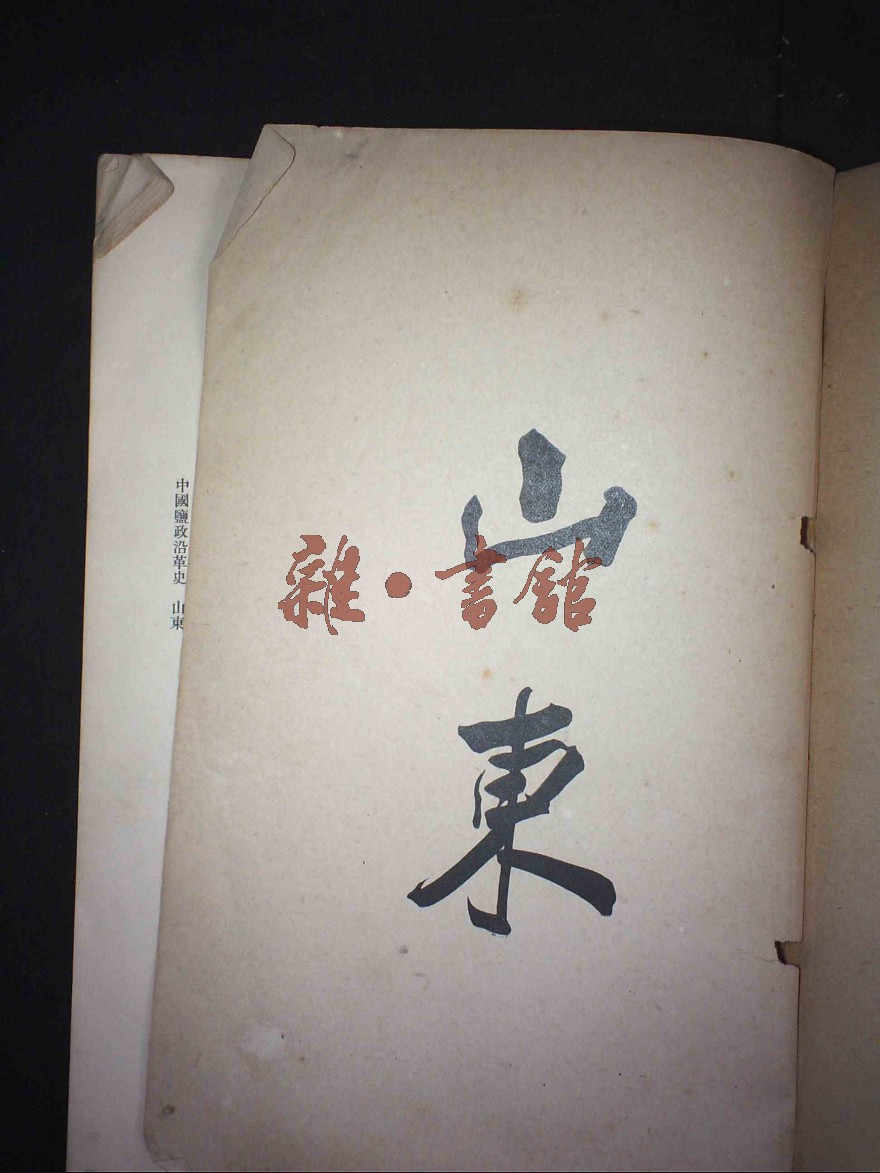 山東
雜·書館
中國鹽政沿革史 山東